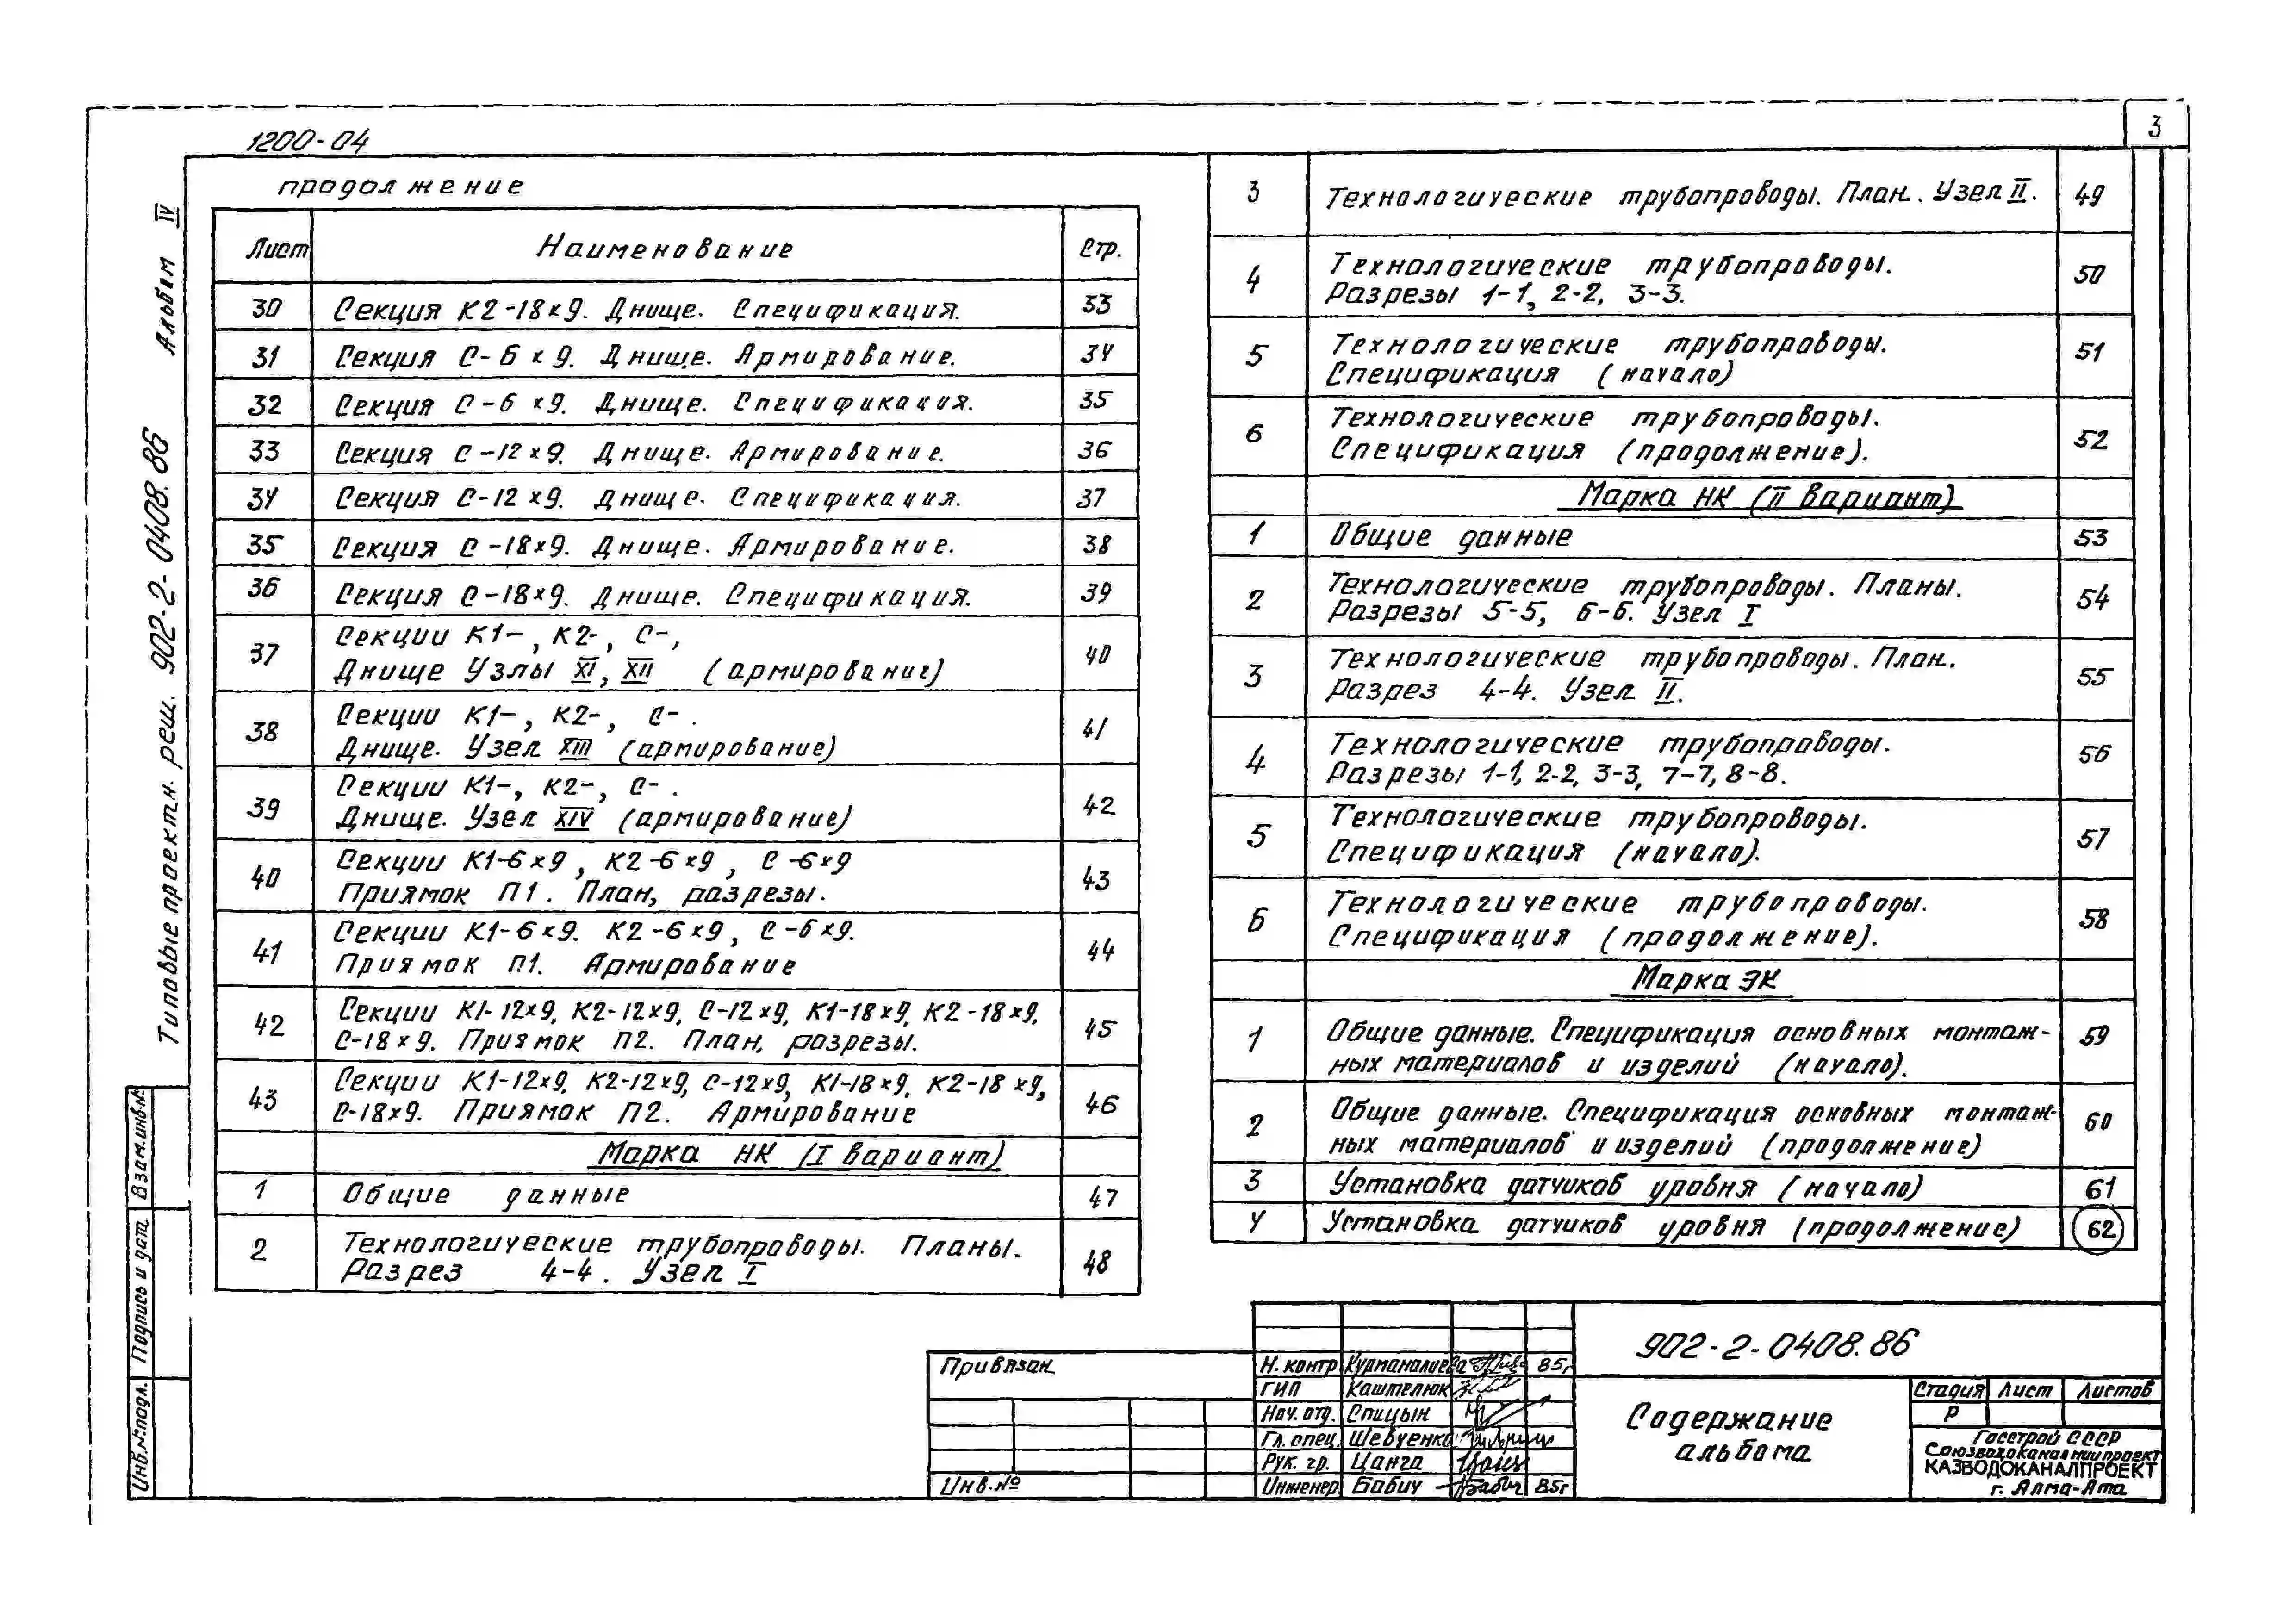 1200-04
3
Типовые проектн. реш. 902-2-0408.86 Альбом IV
продолжение
Лист Наименование Стр.
30 Секция К2-18×9. Днище. Спецификация. 33
31 Секция С-6×9. Днище. Армирование. 34
32 Секция С-6×9. Днище. Спецификация. 35
33 Секция С-12×9. Днище. Армирование. 36
34 Секция С-12×9. Днище. Спецификация. 37
35 Секция С-18×9. Днище. Армирование. 38
36 Секция С-18×9. Днище. Спецификация. 39
37 Секции К1-, К2-, С-,
Днище Узлы XI, XII (армирование) 40
38 Секции К1-, К2-, С-.
Днище. Узел XIII (армирование) 41
39 Секции К1-, К2-, С-.
Днище. Узел XIV (армирование) 42
40 Секции К1-6×9, К2-6×9, С-6×9
Приямок П1. План, разрезы. 43
41 Секции К1-6×9. К2-6×9, С-6×9.
Приямок П1. Армирование 44
42 Секции К1-12×9, К2-12×9, С-12×9, К1-18×9, К2-18×9,
С-18×9. Приямок П2. План, разрезы. 45
43 Секции К1-12×9, К2-12×9, С-12×9, К1-18×9, К2-18×9,
С-18×9. Приямок П2. Армирование 46
Марка НК (I вариант)
1 Общие данные 47
2 Технологические трубопроводы. Планы.
Разрез 4-4. Узел I 48
3 Технологические трубопроводы. План. Узел II. 49
4 Технологические трубопроводы.
Разрезы 1-1, 2-2, 3-3. 50
5 Технологические трубопроводы.
Спецификация (начало) 51
6 Технологические трубопроводы.
Спецификация (продолжение). 52
Марка НК (II вариант)
1 Общие данные 53
2 Технологические трубопроводы. Планы.
Разрезы 5-5, 6-6. Узел I 54
3 Технологические трубопроводы. План.
Разрез 4-4. Узел II. 55
4 Технологические трубопроводы.
Разрезы 1-1, 2-2, 3-3, 7-7, 8-8. 56
5 Технологические трубопроводы.
Спецификация (начало). 57
6 Технологические трубопроводы.
Спецификация (продолжение). 58
Марка ЭК
1 Общие данные. Спецификация основных монтаж-
ных материалов и изделий (начало). 59
2 Общие данные. Спецификация основных монтаж-
ных материалов и изделий (продолжение) 60
3 Установка датчиков уровня (начало) 61
4 Установка датчиков уровня (продолжение) 62
Взам.инв.№
Подпись и дата
Инв.№подл.
Привязан
Инв.№
Н. контр Курманалиева 85г
ГИП Каштелюк
Нач. отд. Спицын
Гл. спец. Шевченко
Рук. гр. Цанга
Инженер Бабич 85г
902-2-0408.86
Содержание
альбома
Стадия Лист Листов
Р
Госстрой СССР
Союзводоканалниипроект
КАЗВОДОКАНАЛПРОЕКТ
г. Алма-Ата